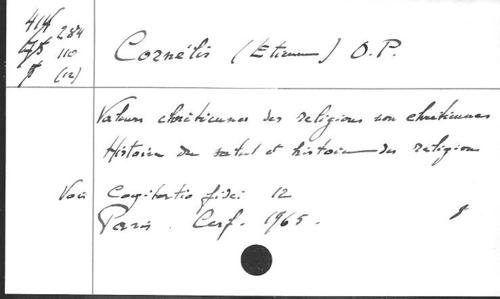 284
110
(12)
Cornélis (Etienne) O.P.
Valeurs chrétiennes des religions non chrétiennes
Histoire du salut et histoire des religions
Voir Cogitatio fidei 12
Paris. Cerf. 1965.